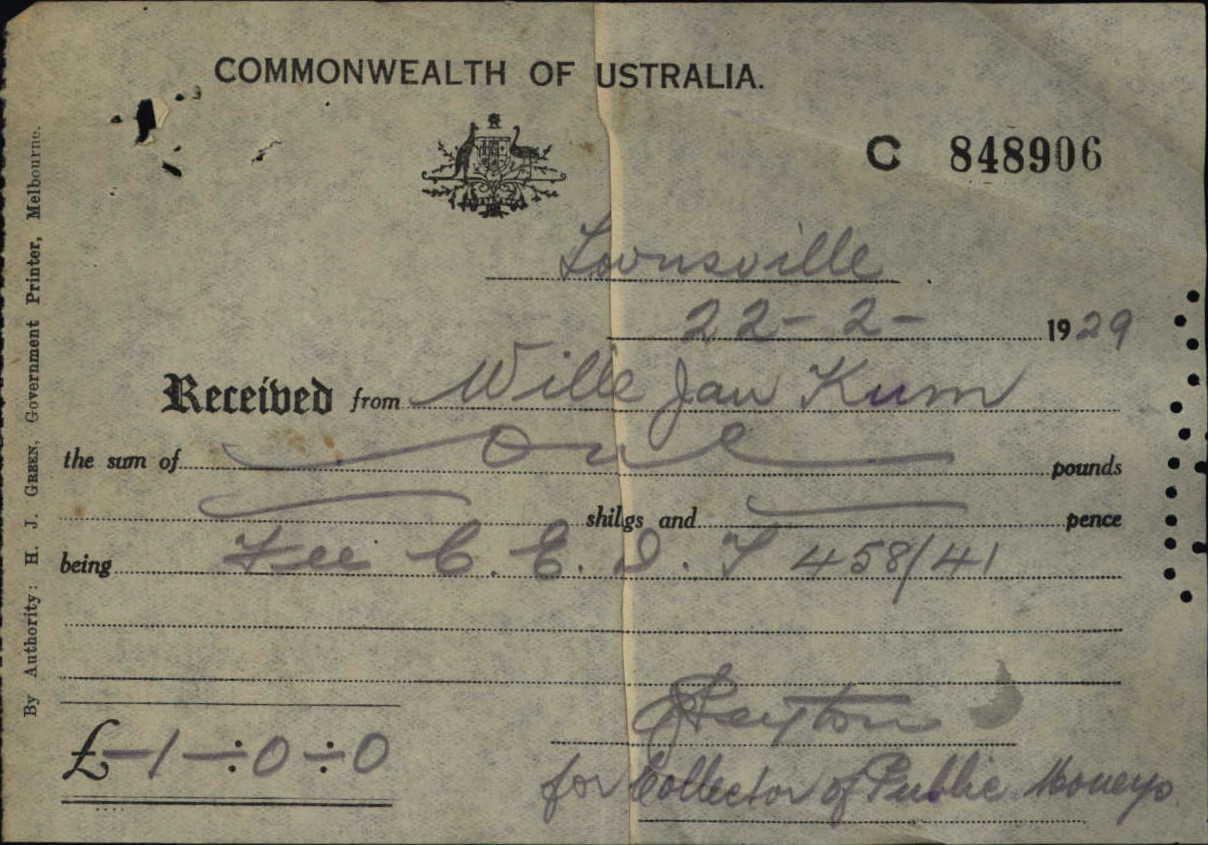 COMMONWEALTH OF USTRALIA.
C 848906
Townsville
22-2-1929
Received from Wille Jan Kum
the sum of One pounds
shilgs and pence
being Fee C.E.D.T 458/41
£-1-:0÷0
for Collector of Public Moneys
By Authority: H. J. GREEN, Government Printer, Melbourne.